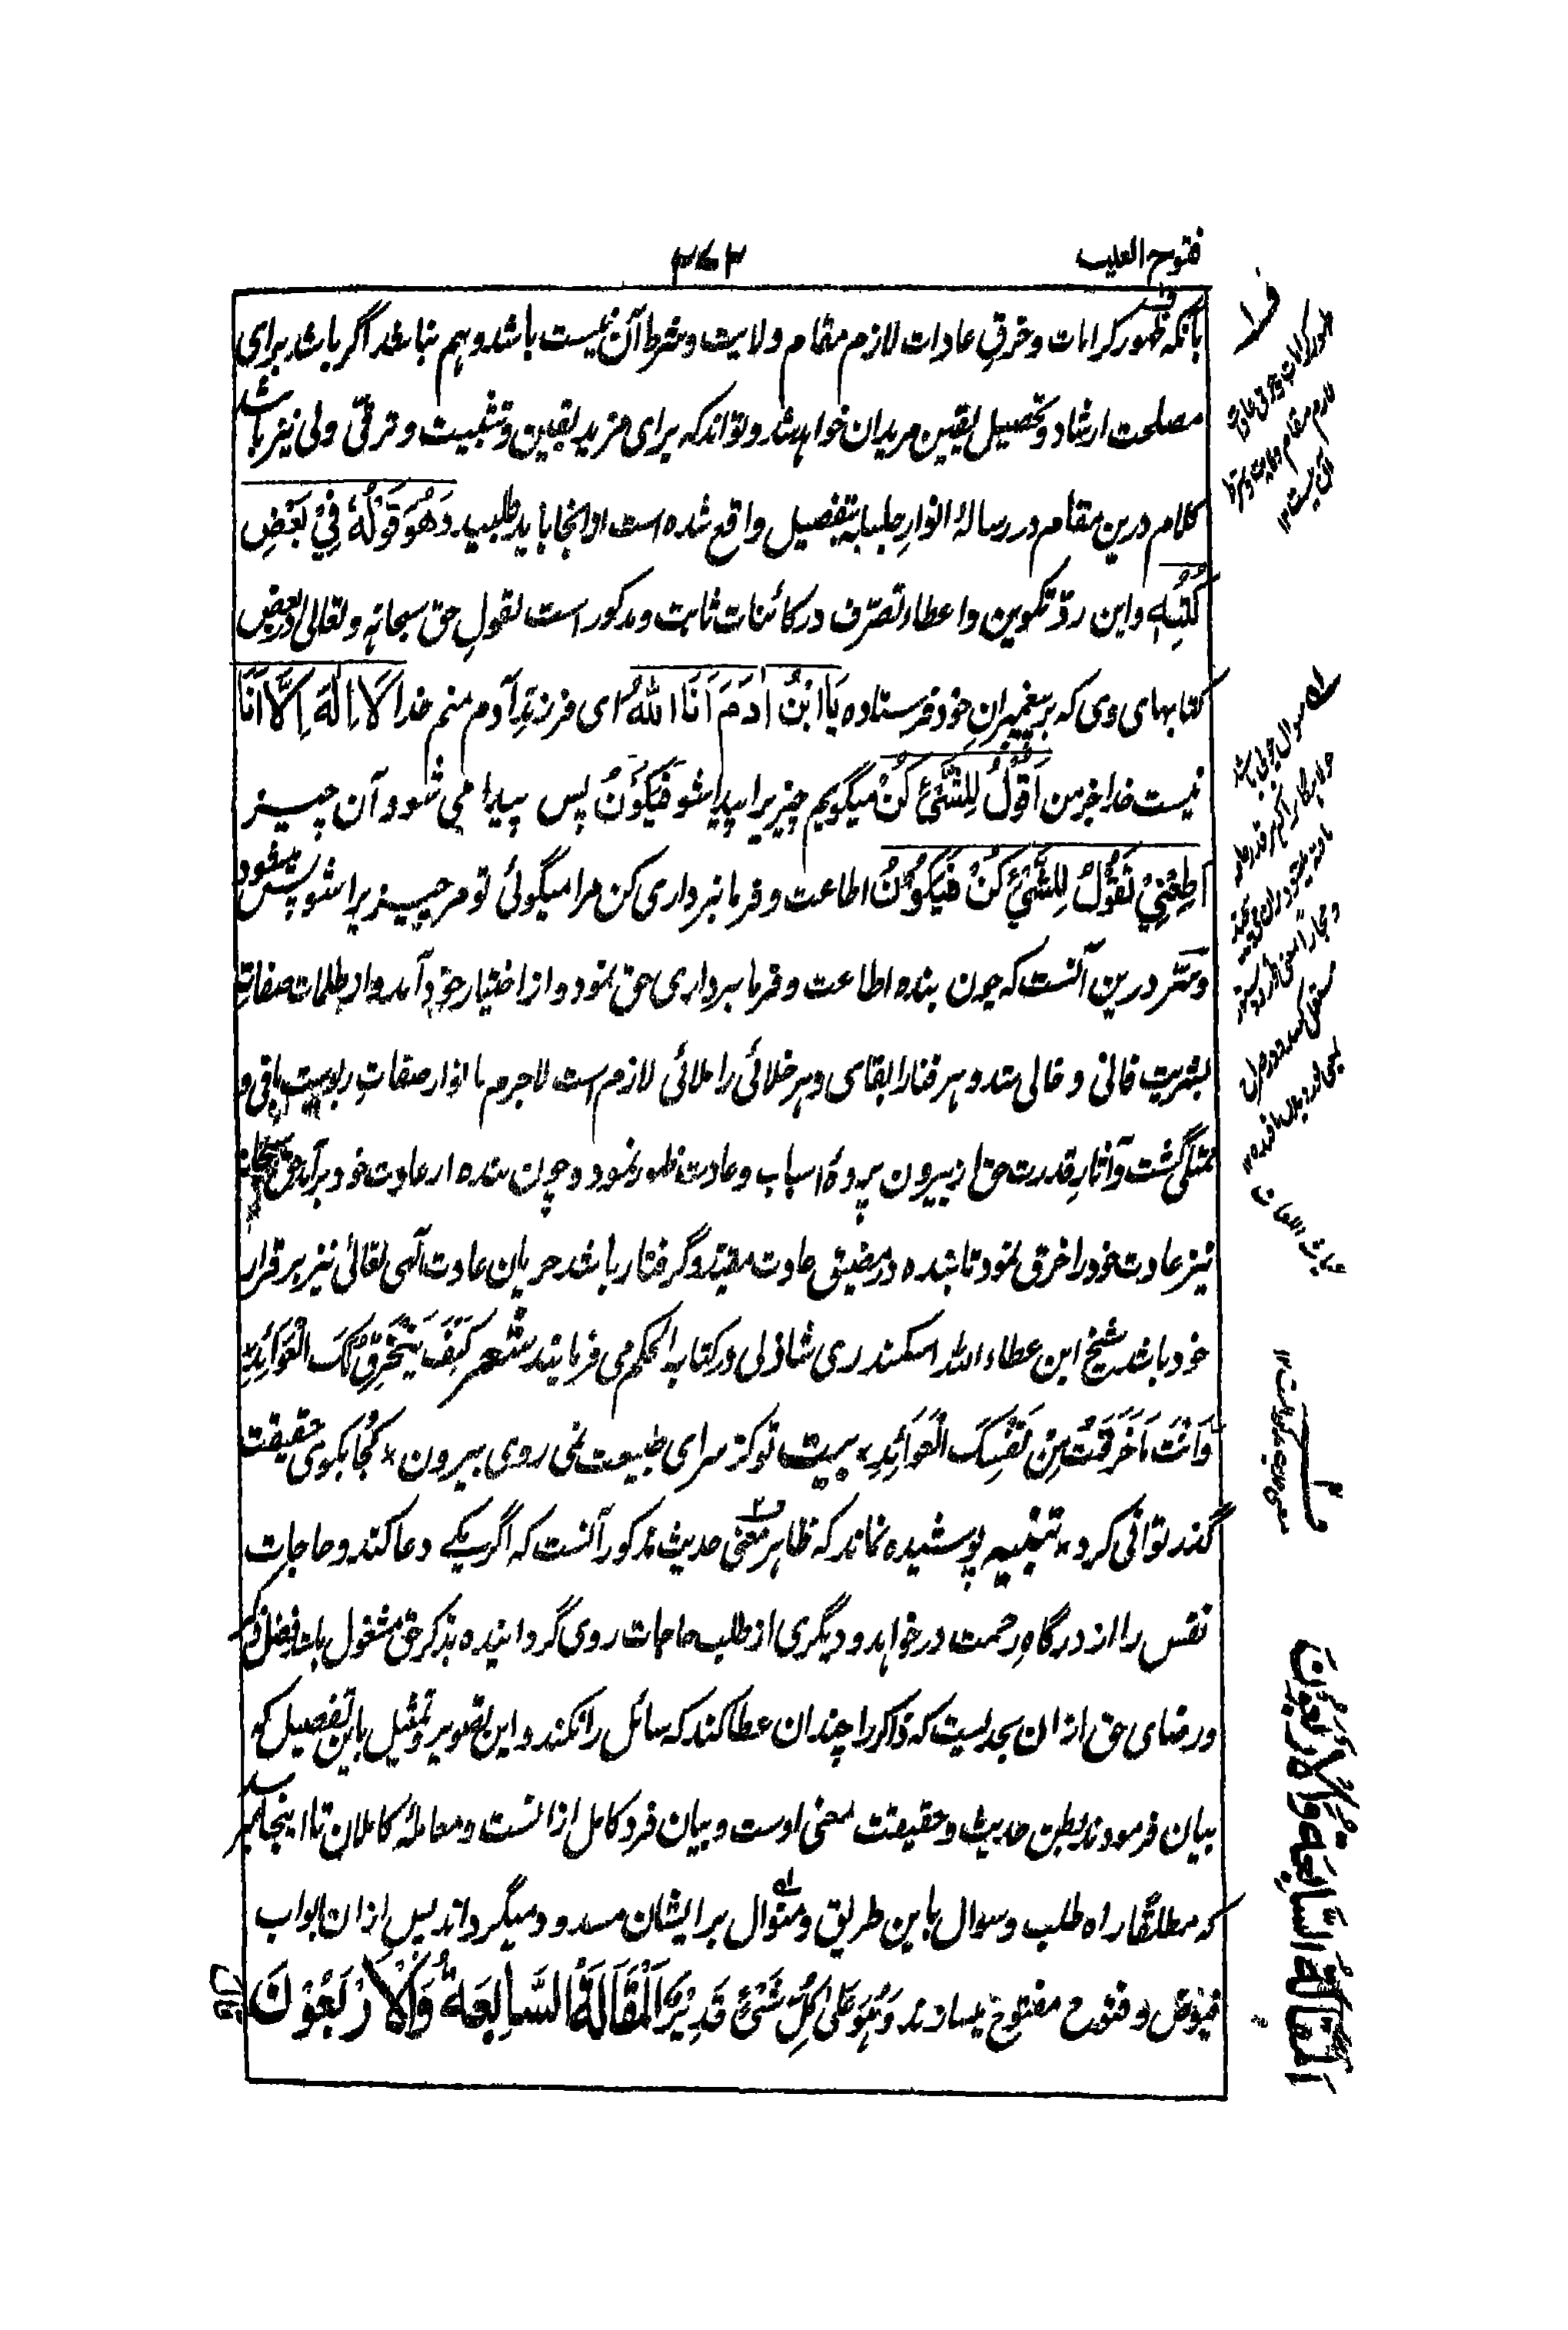 فتوح الغیب
۳۷۳
بآنکه ظهور کرامات و خرقِ عادات لازم مقام ولایت و شرط آن نیست باشد و هم نباشد اگر باشد برای
مصلحت ارشاد و تحصیل یقین مریدان خواهد شد و تواند که برای مزید یقین و تثبیت و ترقّی ولی نیز باشد
کلام درین مقام در رسالهٔ انوارِ جلیه به تفصیل واقع شده است از آنجا باید طلبید وَهُوَ قَوْلُهٗ فِیْ بَعْضِ
کُتُبِهٖ و این ردّ تکوین و اعطاء تصرّف در کائنات ثابت و مذکور است بقولِ حق سبحانه و تعالی در بعض
کتابهای وی که بر پیغمبرانِ خود فرستاده یَا ابْنَ اٰدَمَ اَنَا اللّٰهُ ای فرزندِ آدم منم خدا لَا اِلٰهَ اِلَّا اَنَا
نیست خدا جز من اَقُوْلُ لِلشَّیْءِ کُنْ میگویم چیز را پیدا شو فَیَکُوْنُ پس پیدا می شود آن چیز
اَطِعْنِیْ تَقُوْلُ لِلشَّیْءِ کُنْ فَیَکُوْنُ اطاعت و فرمانبرداری کن مرا میگوئی تو مر چیز را شو پس میشود
و سِرّ درین آنست که چون بنده اطاعت و فرمانبرداری حق نمود و از اختیار خود برآمد و از ظلمات صفاتِ
بشریت فانی و خالی شد و هر فنا را بقای و هر خلائی را ملائی لازم است لاجرم با انوار صفاتِ ربوبیت باقی و
ممتلی گشت و آثارِ قدرت حق از بیرون پردهٔ اسباب و عادت ظهور نمود و چون بنده از عادت خود برآمد حق سبحانه
نیز عادت خود را خرق نمود تا بنده در مضیق عادت مقید و گرفتار باشد جریان عادت الٓهی تعالیٰ نیز بر قرار
خود باشد شیخ ابن عطاء اللّٰه اسکندری شاذلی در کتاب الحکم می فرمایند شعر کَیْفَ یَنْخَرِقُ لَکَ الْعَوَائِدُ
وَاَنْتَ مَا خَرَقْتَ مِنْ نَفْسِکَ الْعَوَائِدِ٭ بیت تو کز سرای طبیعت نمی روی بیرون ٭ کُجا بکوی حقیقت
گذر توانی کرد ٭ تنبیه پوشیده نماند که ظاهر معنی حدیث مذکور آنست که اگر یکے دعا کند و حاجات
نفس را از درگاهِ رحمت درخواهد و دیگری از طلب حاجات روی گردانیده بذکر حق مشغول باشد فضل و کرم
و رضای حق از ان بحدیست که ذاکر را چندان عطا کند که سائل را نکند و این تصویر و تمثیل باین تفصیل که
بیان فرمودند بطن حدیث و حقیقت معنی اوست و بیان فرد کامل از انست و معاملهٔ کاملان تا اینجا میرسد
که مطلقا راه طلب و سوال باین طریق و منوال بر ایشان مسدود میگرداند پس از ان ابواب
فیوض و فتوح مفتوح میسازند وَهُوَ عَلٰی کُلِّ شَیْءٍ قَدِیْرٌ اَلْمَقَالَةُ السَّابِعَةُ وَالْاَرْبَعُوْنَ
قال
ف۱
ظهور کرامات و خرق عادات
لازم مقام ولایت و شرط
آن نیست ۱۲
المقالة السابعة والاربعون